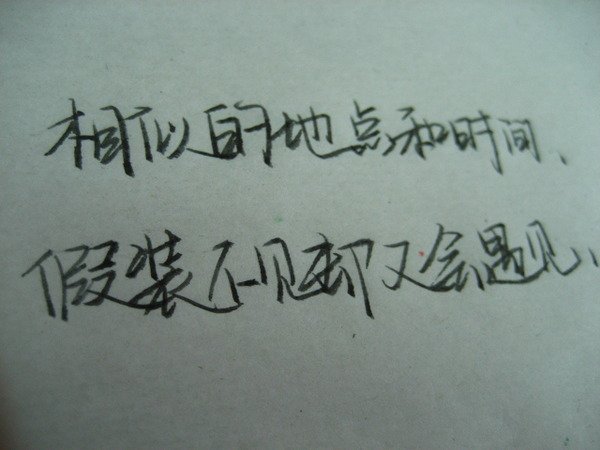 相似的地点和时间、
假装不见却又会遇见、